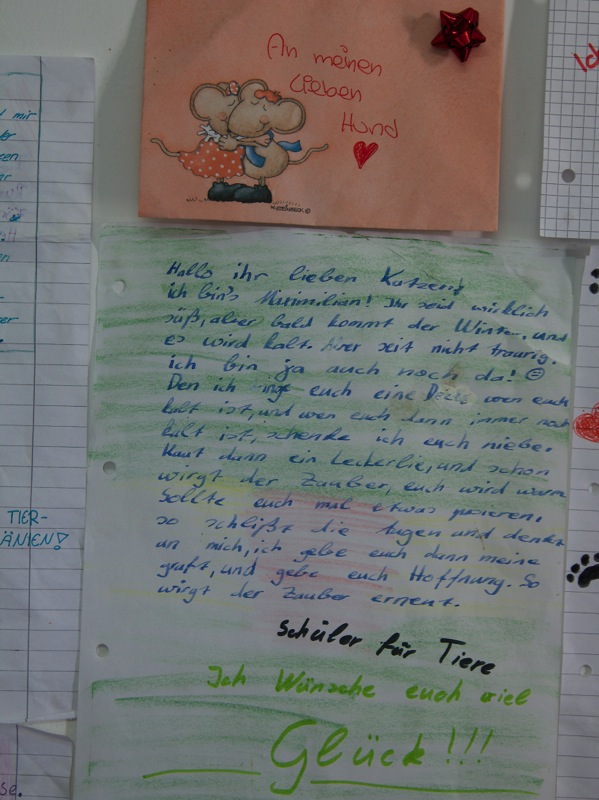 An meinen
lieben
Hund
Hallo ihr lieben Katzen!
ich bin's Maximilian! Ihr seid wirklich
süß, aber bald kommt der Winter, und
es wird kalt. Aber seit nicht traurig,
ich bin ja auch noch da! ☺
Den ich bringe euch eine Decke wen euch
kalt ist, und wen euch dann immer noch
kalt ist, schenke ich euch niebe.
Kaut dann ein Leckerlie, und schon
wirgt der Zauber, euch wird warm
Sollte euch mal etwas pasieren,
so schlißt die Augen und denkt
an mich, ich gebe euch dann meine
graft, und gebe euch Hoffnung. So
wirgt der Zauber erneut.
Schüler für Tiere
Ich Wünsche euch viel
Glück!!!
TIER-
ÄNIEN!
mir
se.